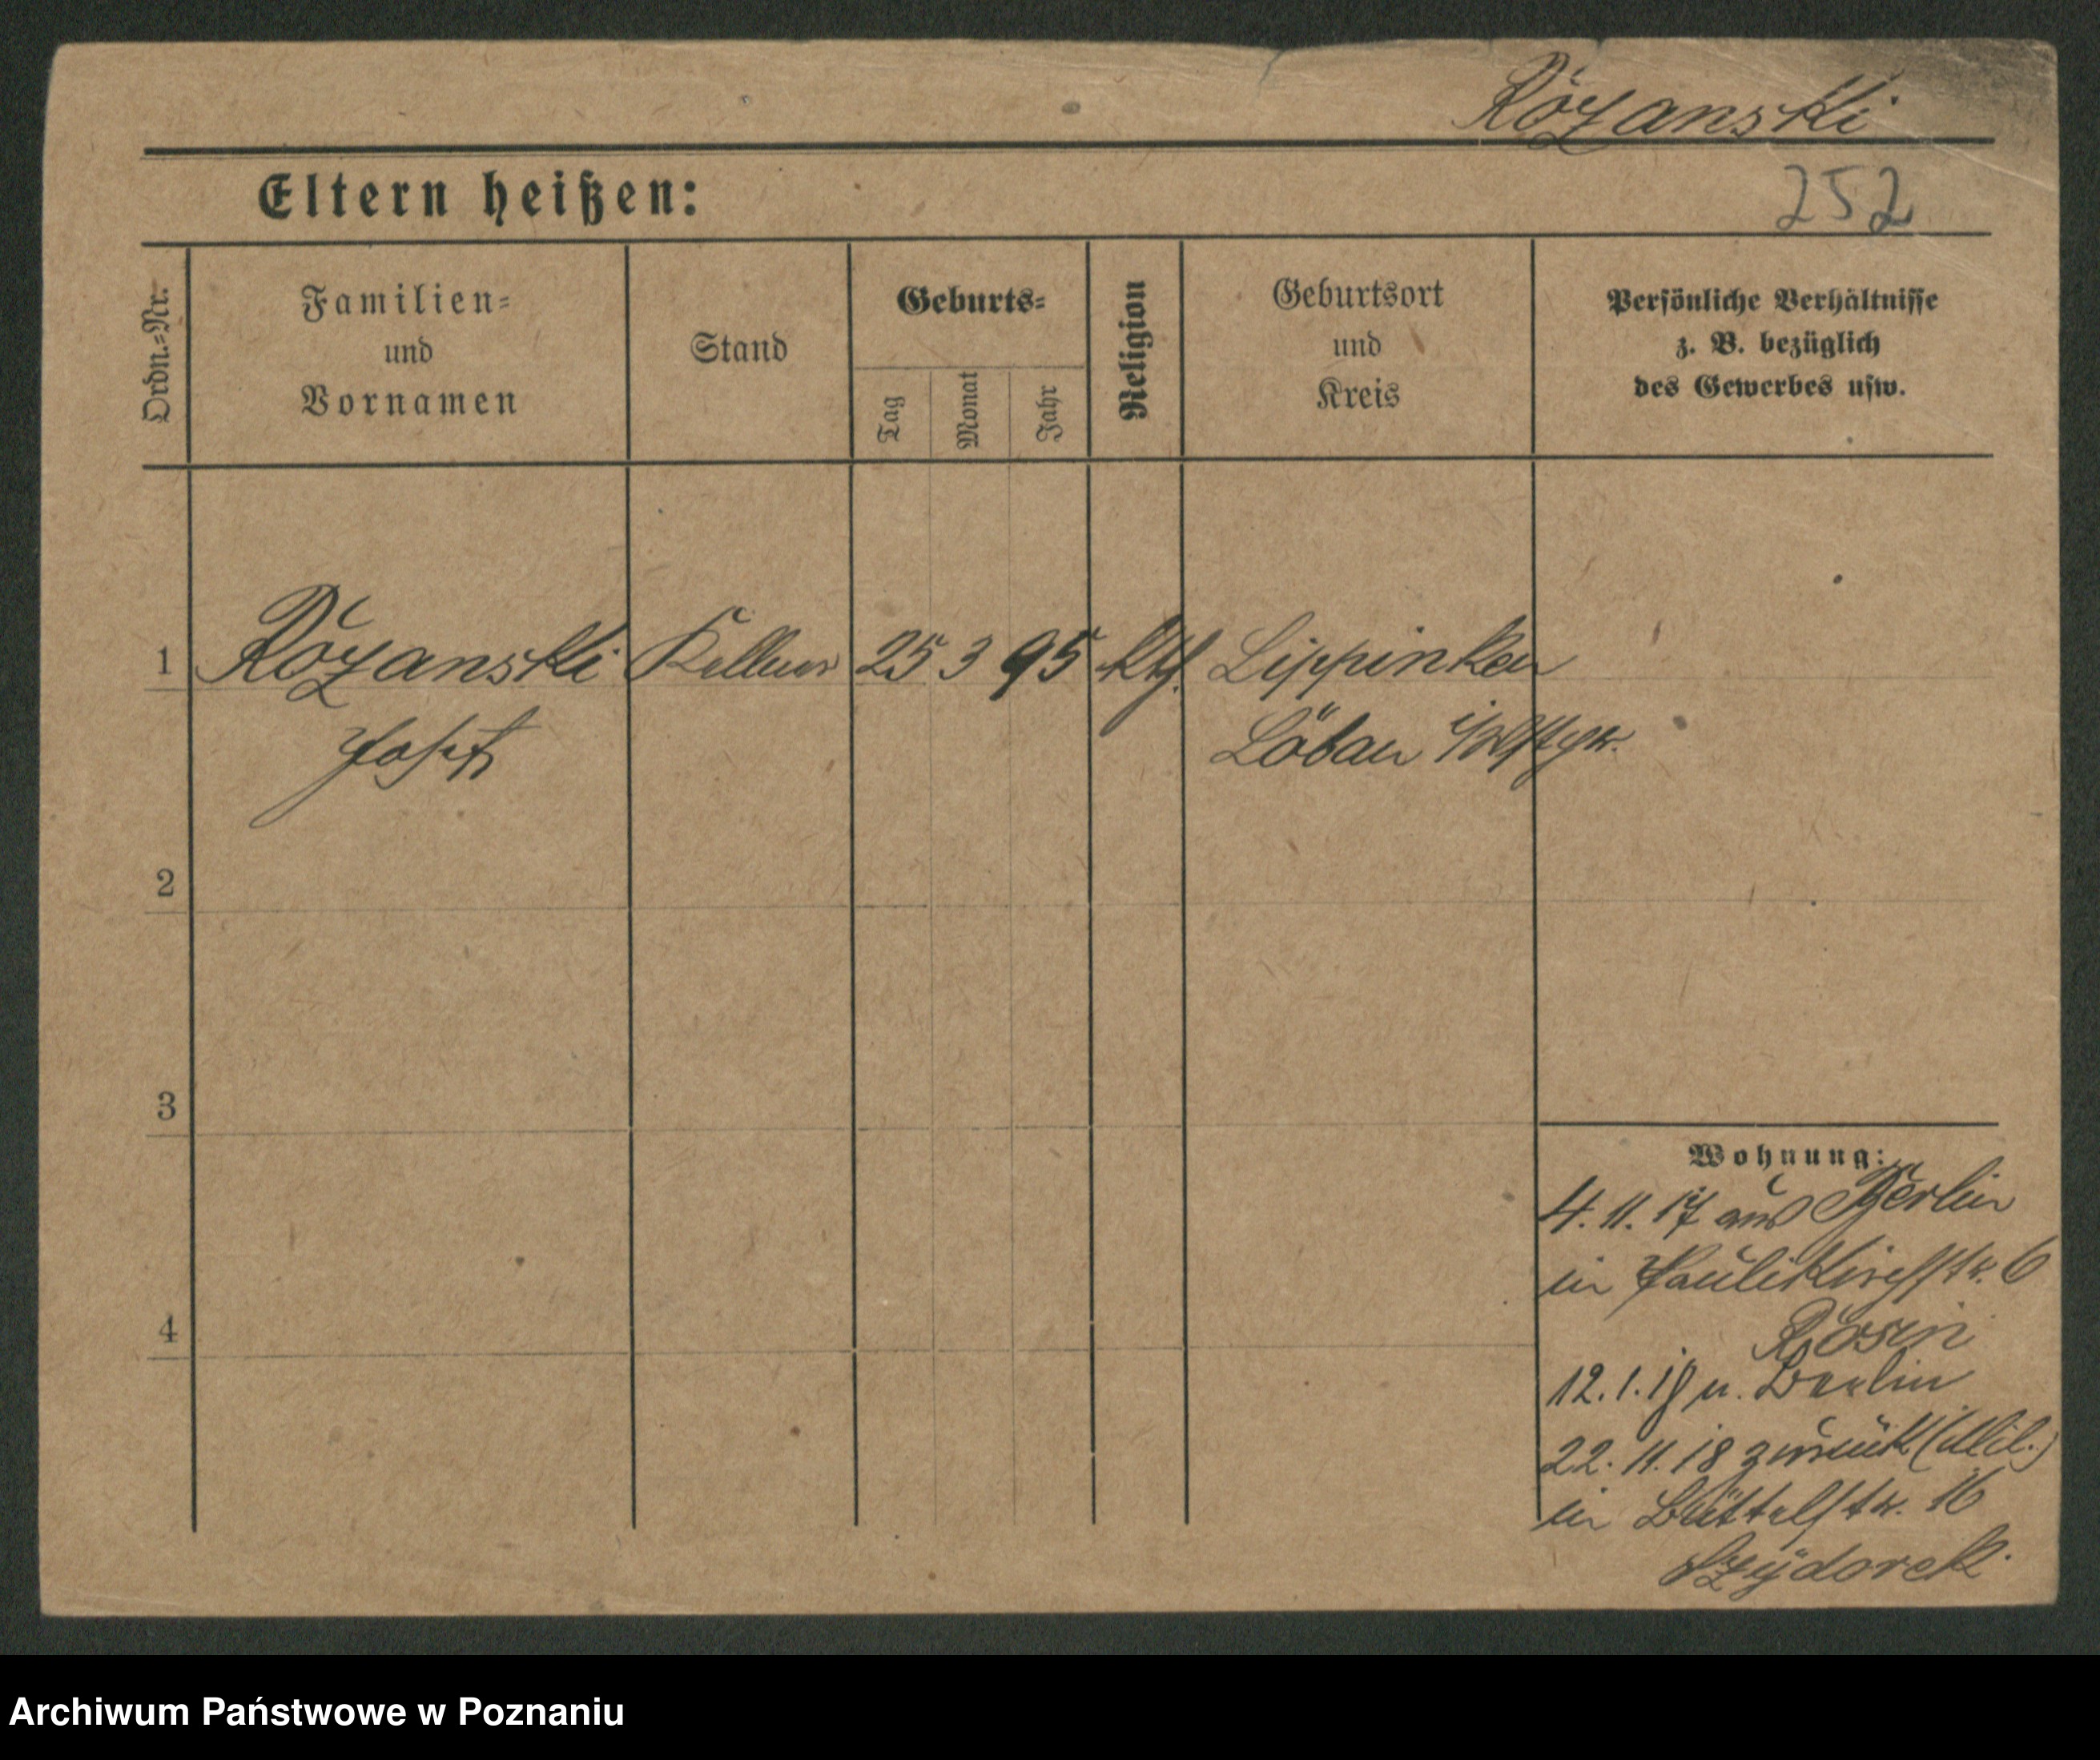 Rózanski
252
Eltern heißen:
Ordn.-Nr.
Familien- und Vornamen
Stand
Geburts-
Tag
Monat
Jahr
Religion
Geburtsort und Kreis
Persönliche Verhältnisse
z. B. bezüglich
des Gewerbes usw.
1 Rózanski Kellner 25 3 95 kth. Lippinken
Josef Löbau i/Westpr.
2
3
4
Wohnung:
4. 11. 17 aus Berlin
in Paulikirchstr. 6
Rosin
12. 1. 18 n. Berlin
22. 11. 18 zurück (Mil.)
in Büttelstr. 16
Szydorek
Archiwum Państwowe w Poznaniu